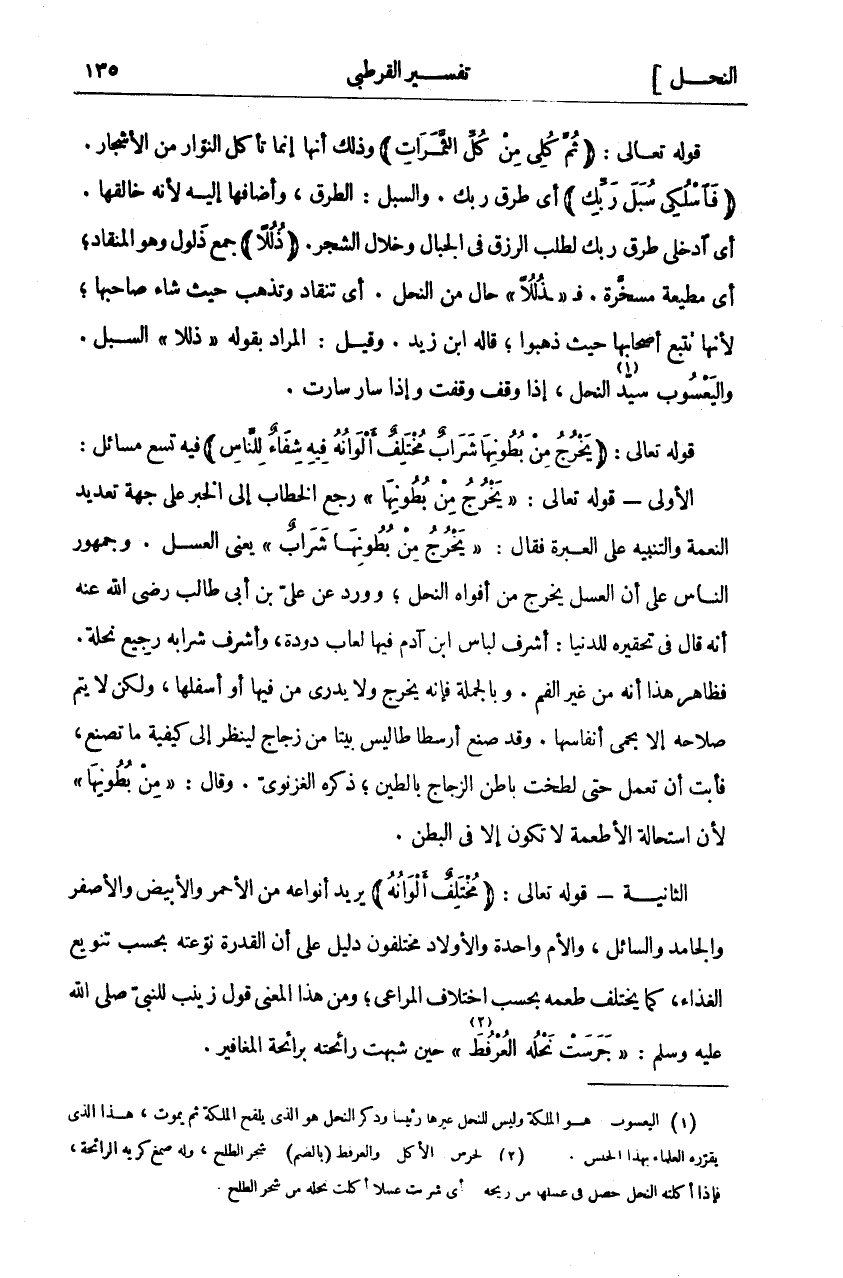 النحـــل ]
تفســـير القرطبى
١٣٥
قوله تعـالى : ﴿ ثُمَّ كُلِى مِنْ كُلِّ الثَّمَرَاتِ ﴾ وذلك أنها إنما تأكل النوّار من الأشجار .
﴿ فَٱسْلُكِى سُبُلَ رَبِّكِ ﴾ أى طرق ربك . والسبل : الطرق ، وأضافها إليـه لأنه خالقها .
أى آدخلى طرق ربك لطلب الرزق فى الجبال وخلال الشجر. ﴿ ذُلُلًا ﴾ جمع ذَلول وهو المنقاد؛
أى مطيعة مسخَّرة . فـ « ـذُلُلًا » حال من النحل . أى تنقاد وتذهب حيث شاء صاحبها ؛
لأنها تتبع أصحابها حيث ذهبوا ؛ قاله ابن زيد . وقيـل : المراد بقوله « ذللا » السـبل .
واليَعْسُوب سيّد (١) النحل ، إذا وقف وقفت وإذا سار سارت .
قوله تعالى : ﴿ يَخْرُجُ مِنْ بُطُونِهَا شَرَابٌ مُخْتَلِفٌ أَلْوَانُهُ فِيهِ شِفَاءٌ لِلنَّاسِ ﴾ فيه تسع مسائل :
الأولى — قوله تعالى : « يَخْرُجُ مِنْ بُطُونِهَا » رجع الخطاب إلى الخبر على جهة تعديد
النعمة والتنبيه على العـبرة فقال : « يَخْرُجُ مِنْ بُطُونِهَـا شَرَابٌ » يعنى العسـل . وجمهور
النـاس على أن العسل يخرج من أفواه النحل ؛ وورد عن علىّ بن أبى طالب رضى الله عنه
أنه قال فى تحقيره للدنيا : أشرف لباس ابن آدم فيها لعاب دودة، وأشرف شرابه رجيع نحلة.
فظاهر هذا أنه من غير الفم . وبالجملة فإنه يخرج ولا يدرى من فيها أو أسفلها ، ولكن لا يتم
صلاحه إلا بحمى أنفاسها . وقد صنع أرسطاطاليس بيتا من زجاج لينظر إلى كيفية ما تصنع ،
فأبت أن تعمل حتى لطخت باطن الزجاج بالطين ؛ ذكره الغزنوىّ . وقال : « مِنْ بُطُونِهَا »
لأن استحالة الأطعمة لا تكون إلا فى البطن .
الثانيـــة — قوله تعالى : ﴿ مُخْتَلِفٌ أَلْوَانُهُ ﴾ يريد أنواعه من الأحمر والأبيض والأصفر
والجامد والسائل ، والأم واحدة والأولاد مختلفون دليل على أن القدرة نوّعته بحسب تنويع
الغذاء، كما يختلف طعمه بحسب اختلاف المراعى ؛ ومن هذا المعنى قول زينب للنبىّ صلى الله
عليه وسلم : « جَرَسَتْ نَحْلُه العُرْفُطَ (٢) » حين شبهت رائحته برائحة المغافير .
(١) اليعسوب هـو الملكة وليس للنحل غيرها رئيسا وذكر النحل هو الذى يلقح الملكة ثم يموت ، هـذا الذى
يقرّره العلماء بهذا الجنس . (٢) الجرس الأكل والعرفط (بالضم) شجر الطلح ، وله صمغ كريه الرائحة ،
فإذا أكلته النحل حصل فى عسلها من ريحه أى شربت عسلا أكلت نحله من شجر الطلح .